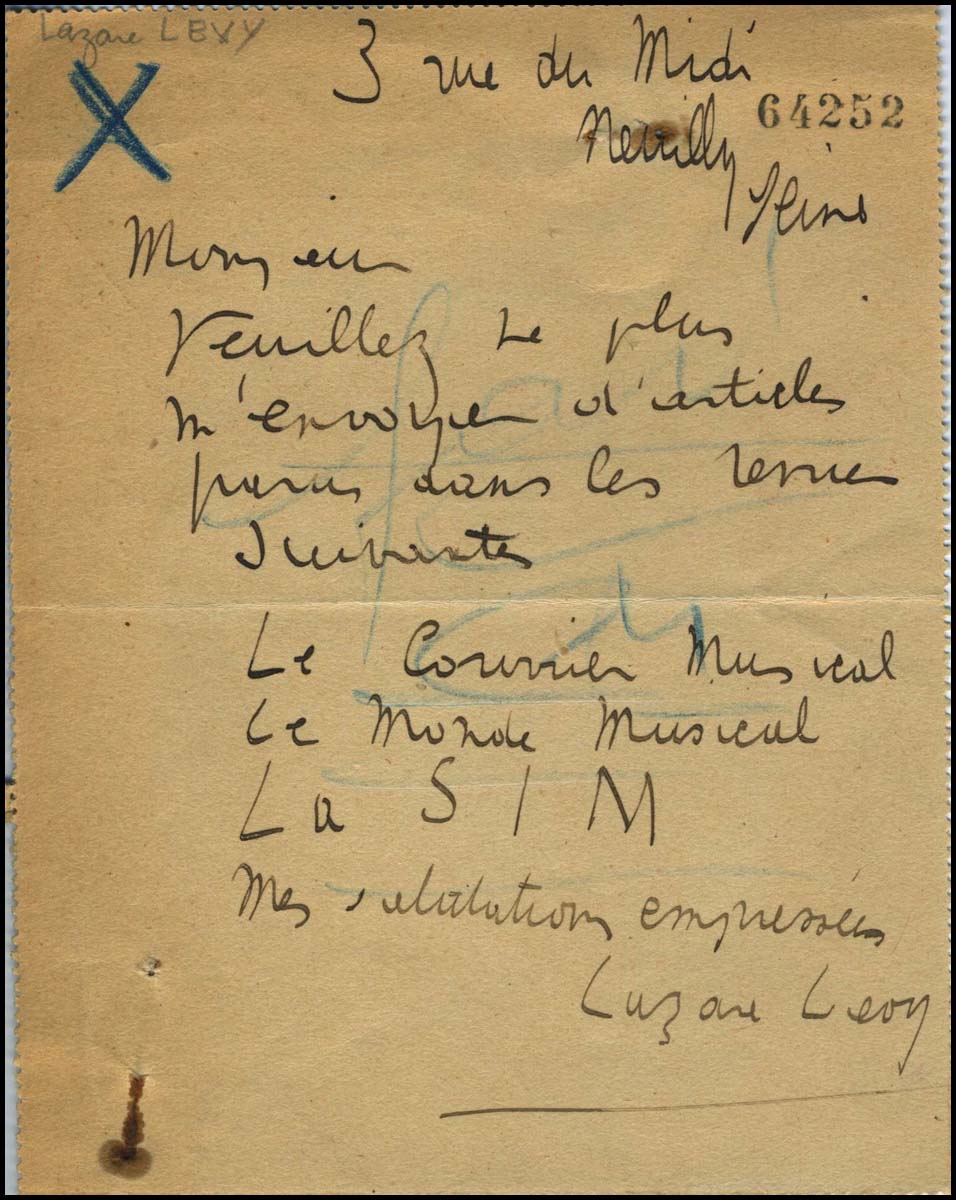 Lazare LEVY
3 rue du Midi
64252
Neuilly
Seine
Monsieur
Veuillez ne plus
m'envoyer d'articles
parus dans les revues
suivantes
Le Courrier Musical
Le Monde Musical
La S I M
Mes salutations empressées
Lazare Levy